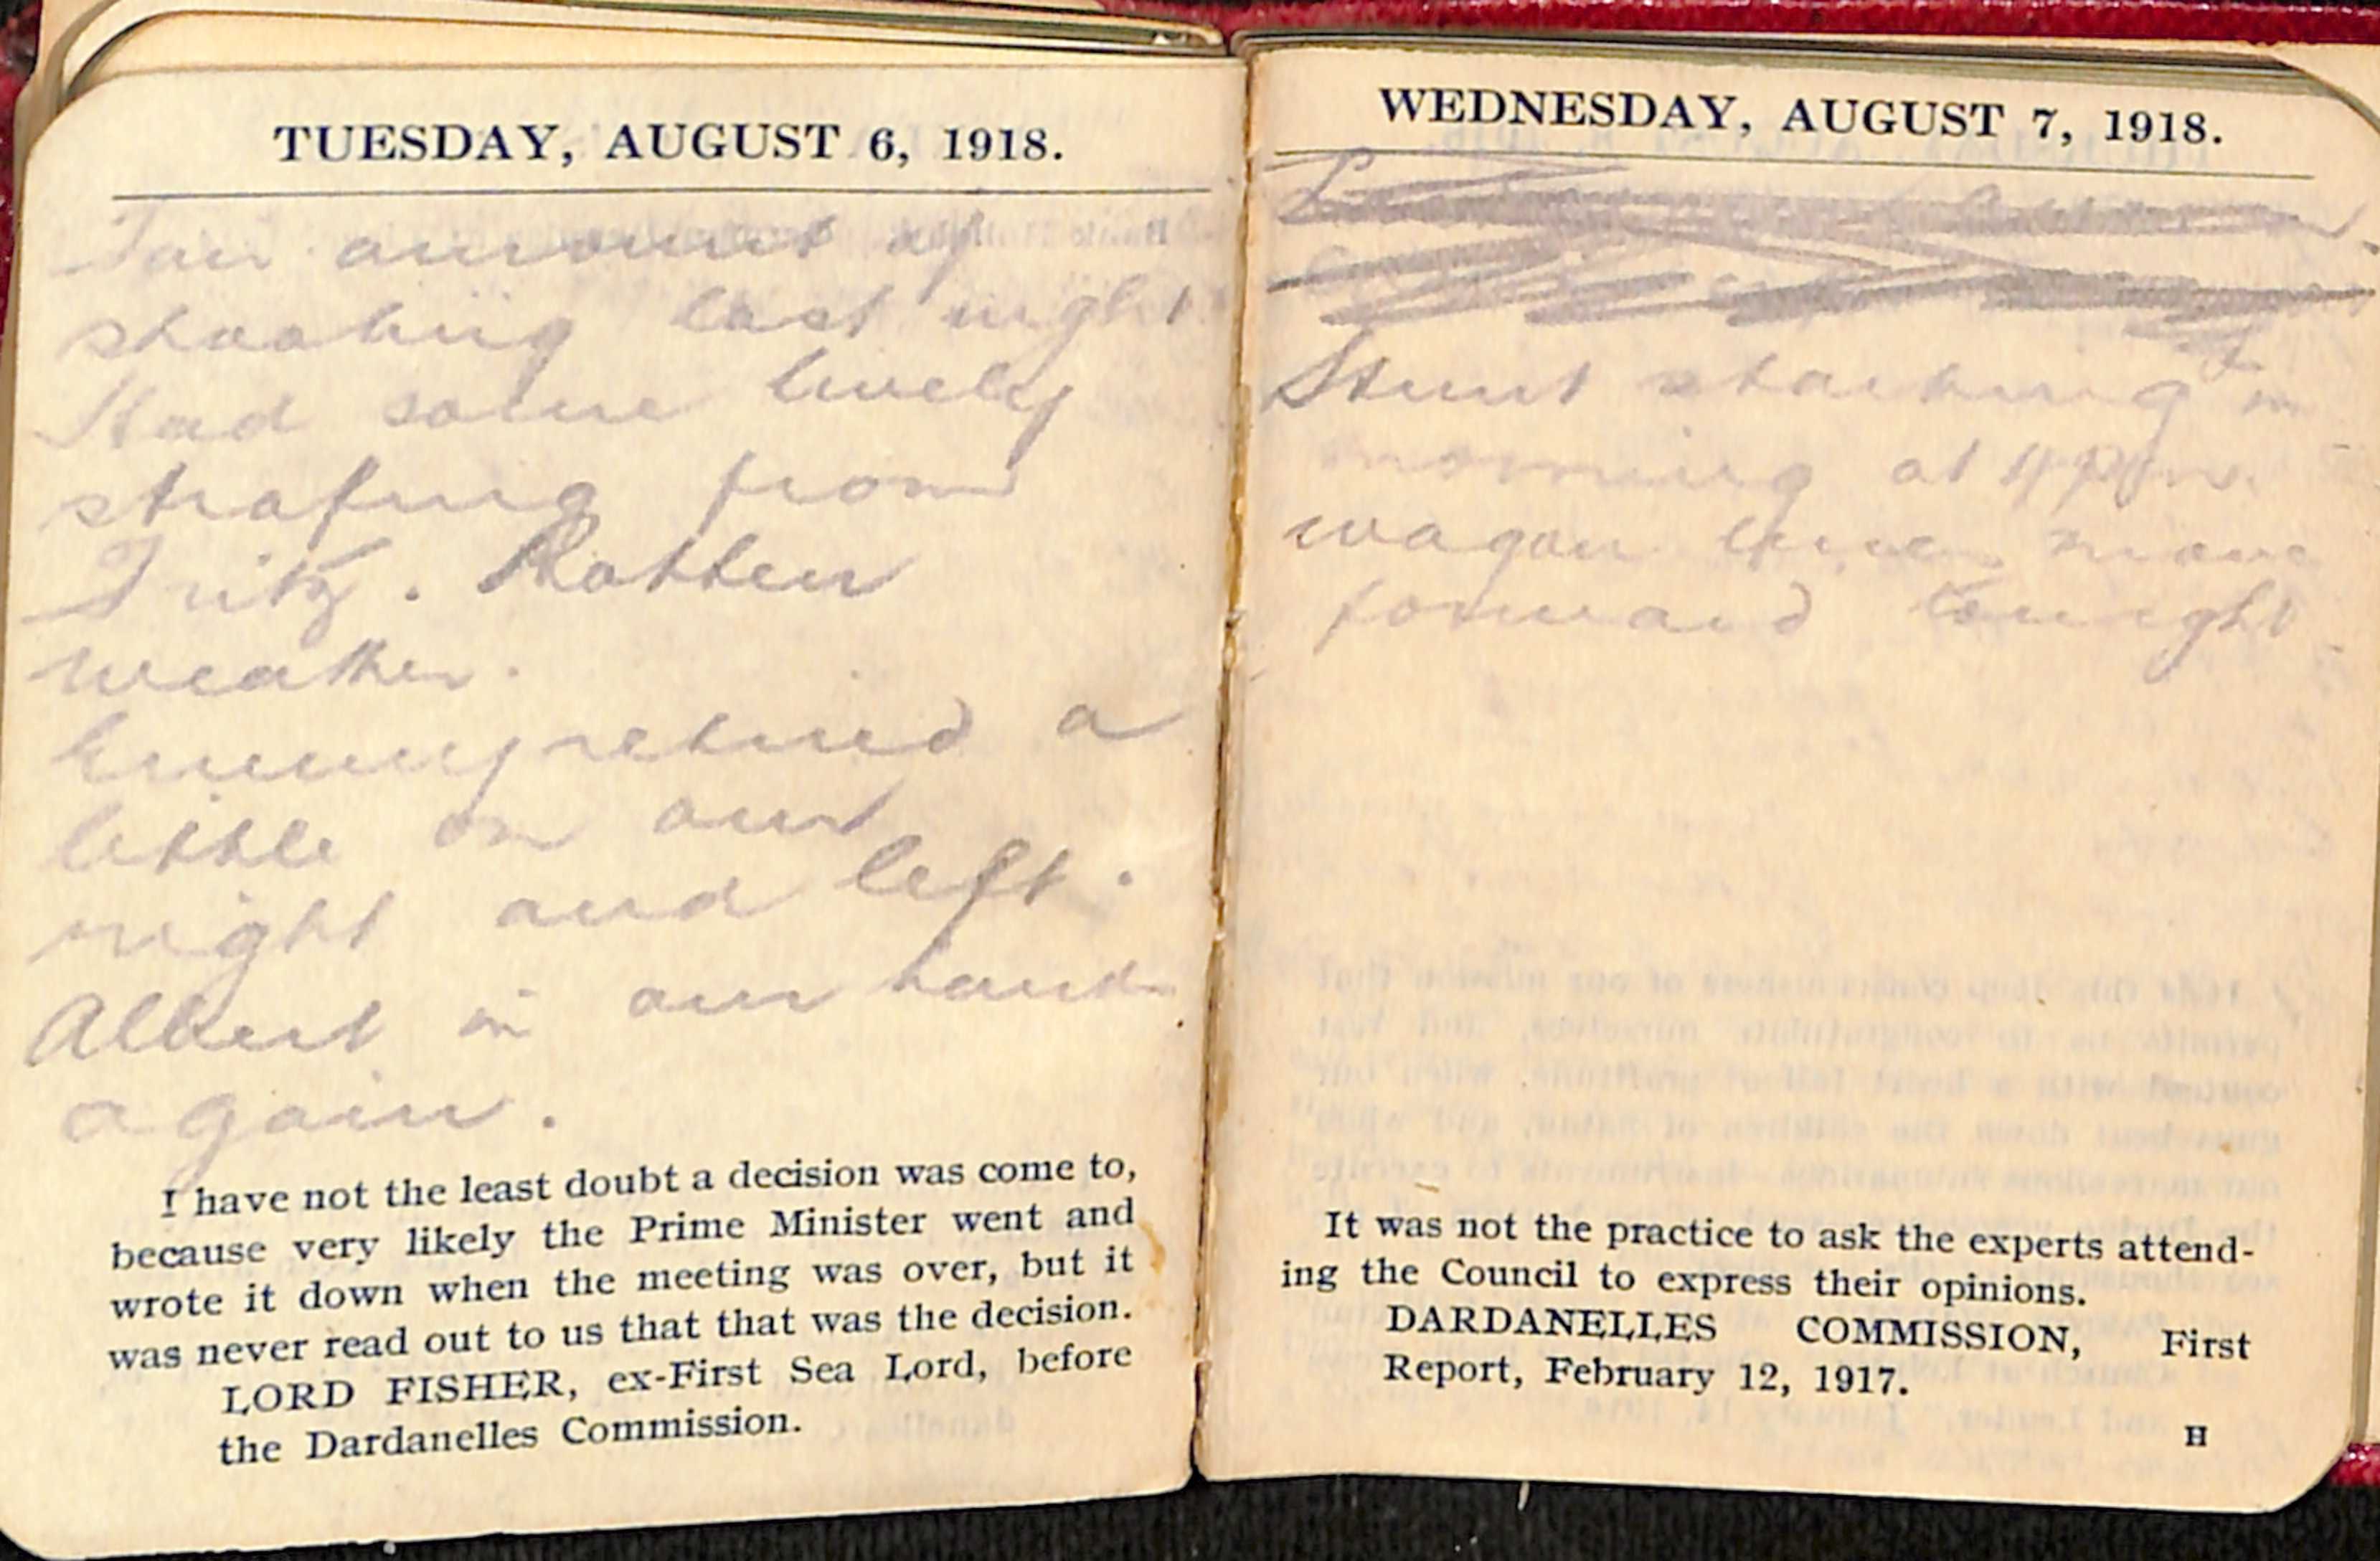 TUESDAY, AUGUST 6, 1918.
Fair amount of
shooting last night
Had some lively
strafing from
Fritz. Rotten
weather.
Enemy retired a
little on our
right and left.
Albert in our hands
again.
I have not the least doubt a decision was come to,
because very likely the Prime Minister went and
wrote it down when the meeting was over, but it
was never read out to us that that was the decision.
LORD FISHER, ex-First Sea Lord, before
the Dardanelles Commission.
WEDNESDAY, AUGUST 7, 1918.
Stunt starting in
morning at 4 p.m.
wagon lines move
forward tonight
It was not the practice to ask the experts attend-
ing the Council to express their opinions.
DARDANELLES COMMISSION, First
Report, February 12, 1917.
H